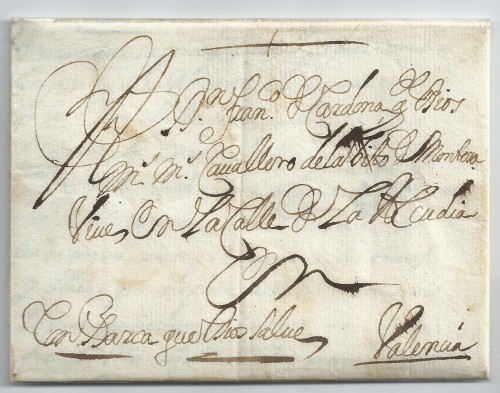 A Dn. Franco. de Cardona q Dios
ms. ms. Cavallero de la de Montesa
Vive, En La Calle de La Alcudia
En
Con Barca que Dios Salve, Valencia